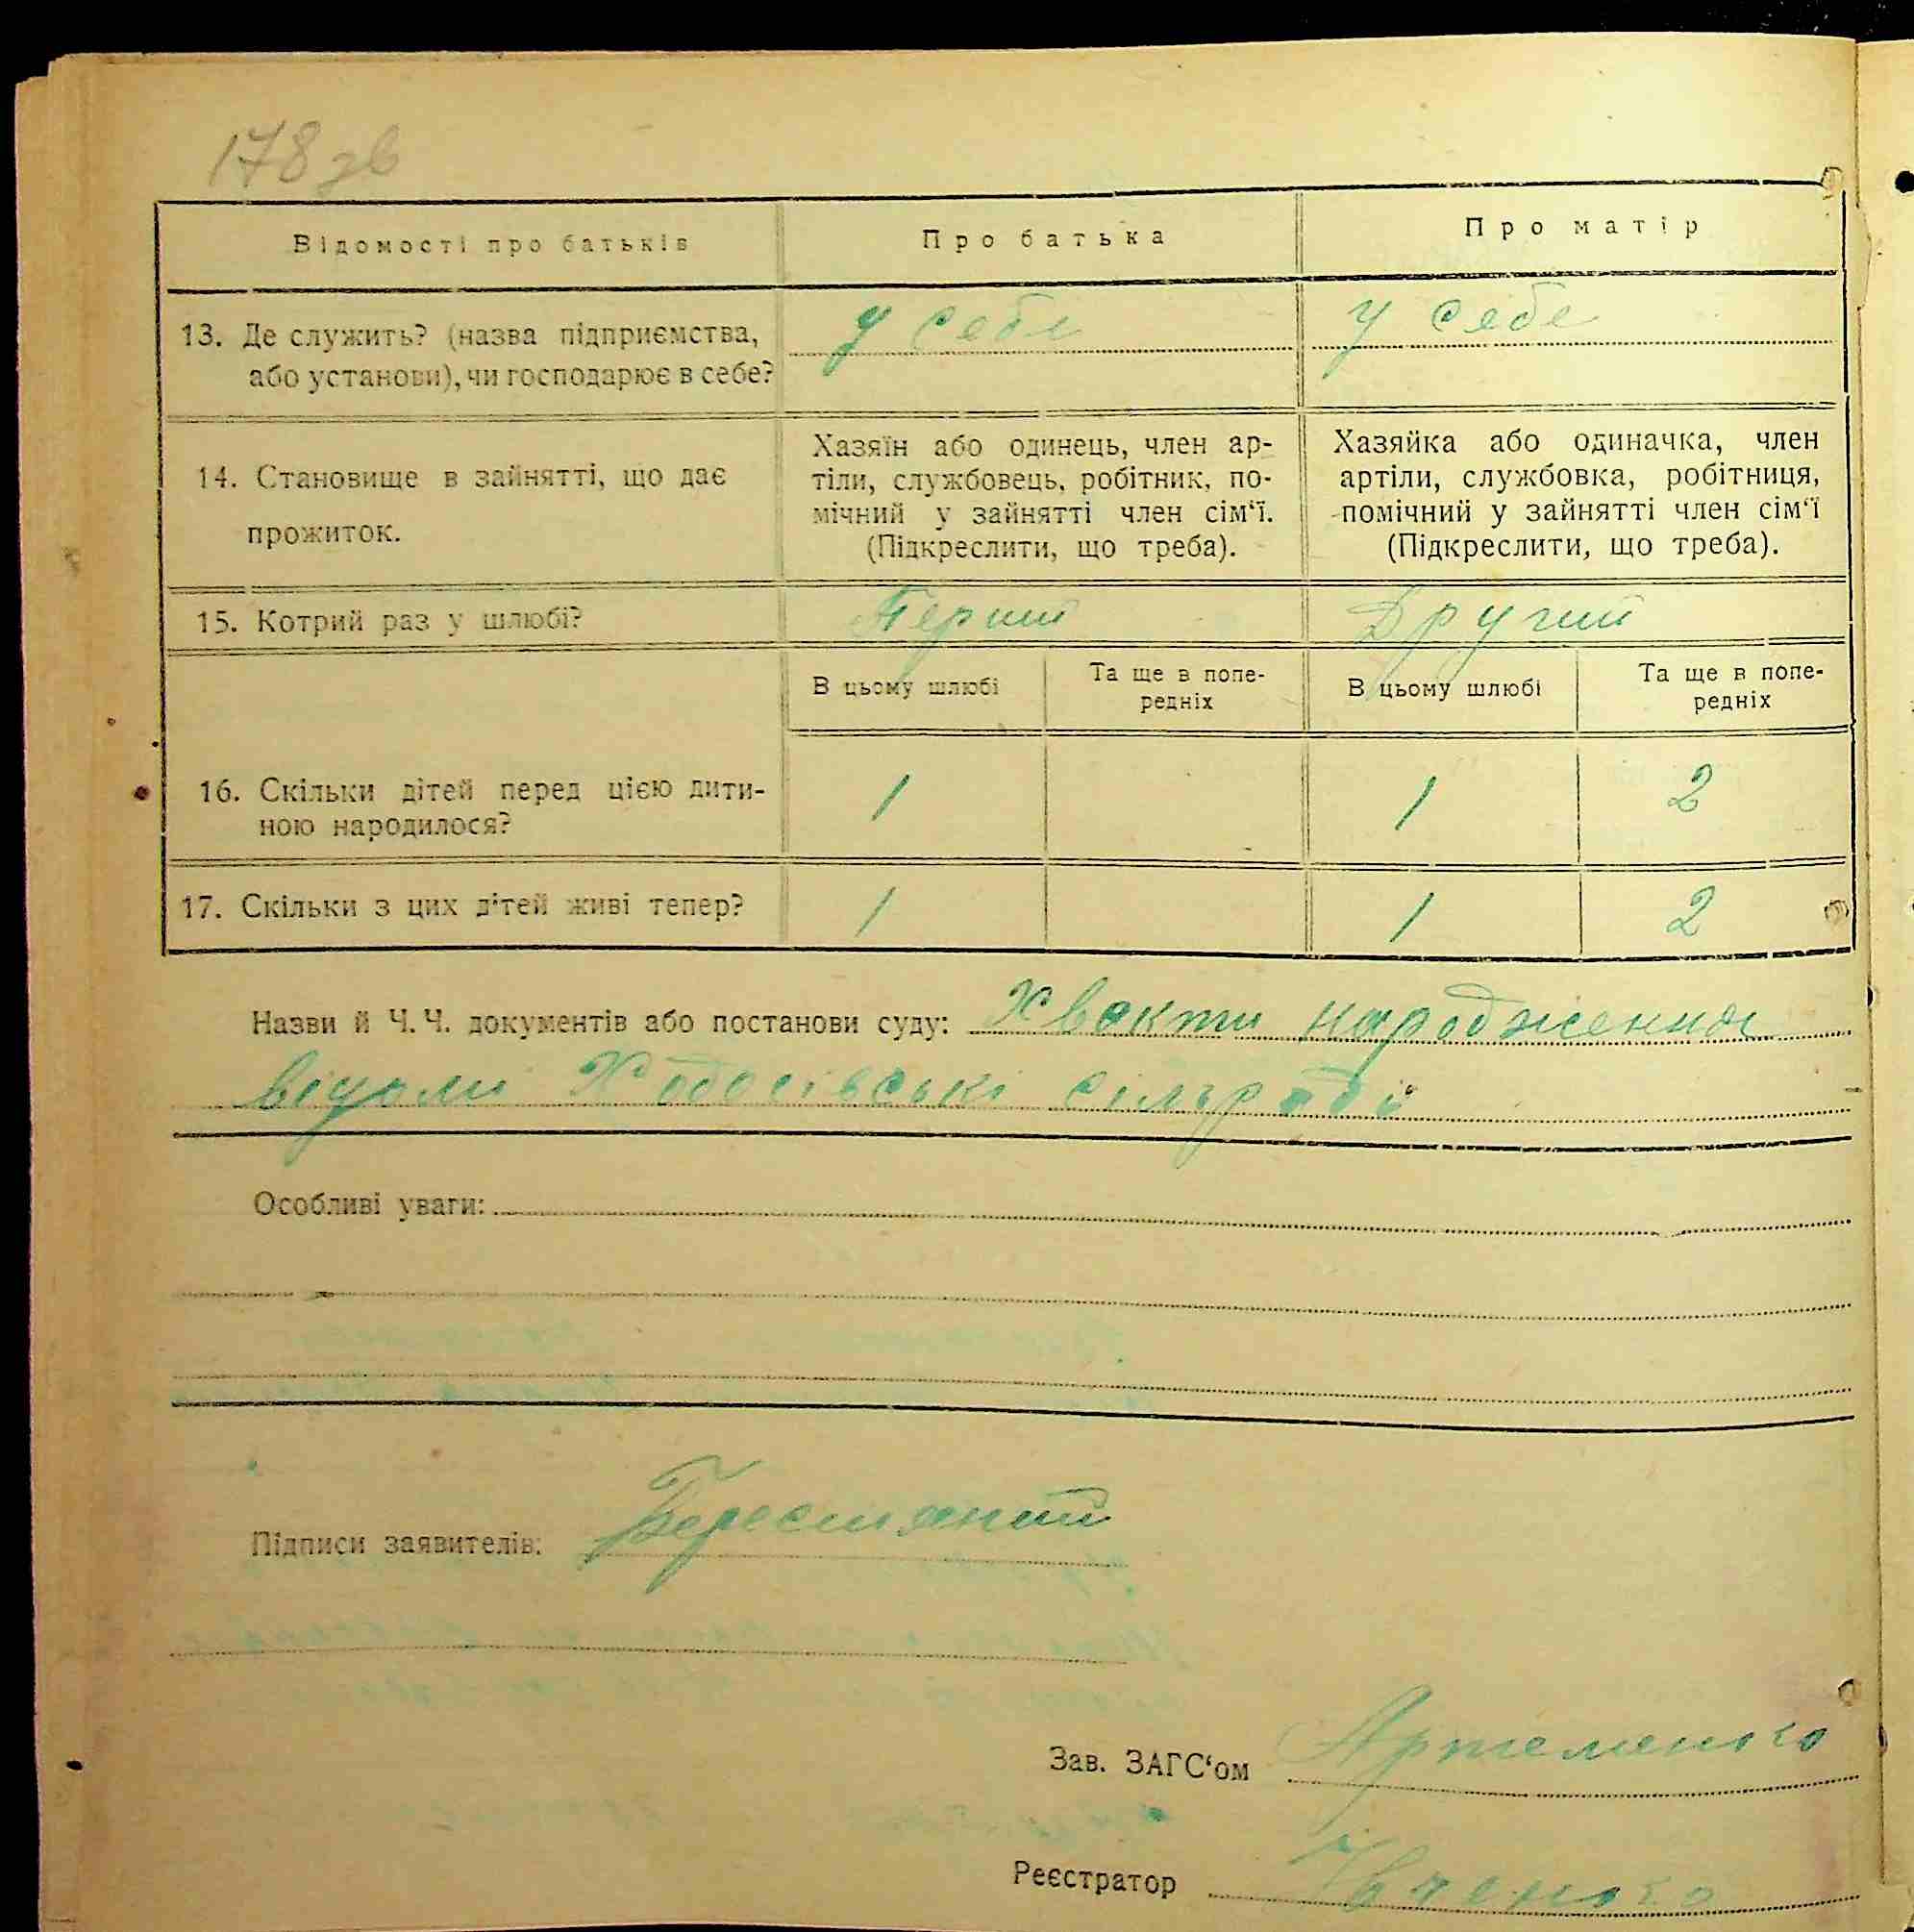 178 зв
Відомості про батьків
Про батька
Про матір
13. Де служить? (назва підприємства,
або установи), чи господарює в себе?
у себе
у себе
14. Становище в зайнятті, що дає
прожиток.
Хазяїн або одинець, член ар-
тіли, службовець, робітник, по-
мічний у зайнятті член сім‘ї.
(Підкреслити, що треба).
Хазяйка або одиначка, член
артіли, службовка, робітниця,
помічний у зайнятті член сім‘ї
(Підкреслити, що треба).
15. Котрий раз у шлюбі?
Перший
Другий
В цьому шлюбі
Та ще в попе-
редніх
В цьому шлюбі
Та ще в попе-
редніх
16. Скільки дітей перед цією дити-
ною народилося?
1
1
2
17. Скільки з цих дітей живі тепер?
1
1
2
Назви й Ч. Ч. документів або постанови суду: Хвакти народження
відомі сільраді
Особливі уваги:
Підписи заявителів:
Зав. ЗАГС‘ом Артеменко
Реєстратор